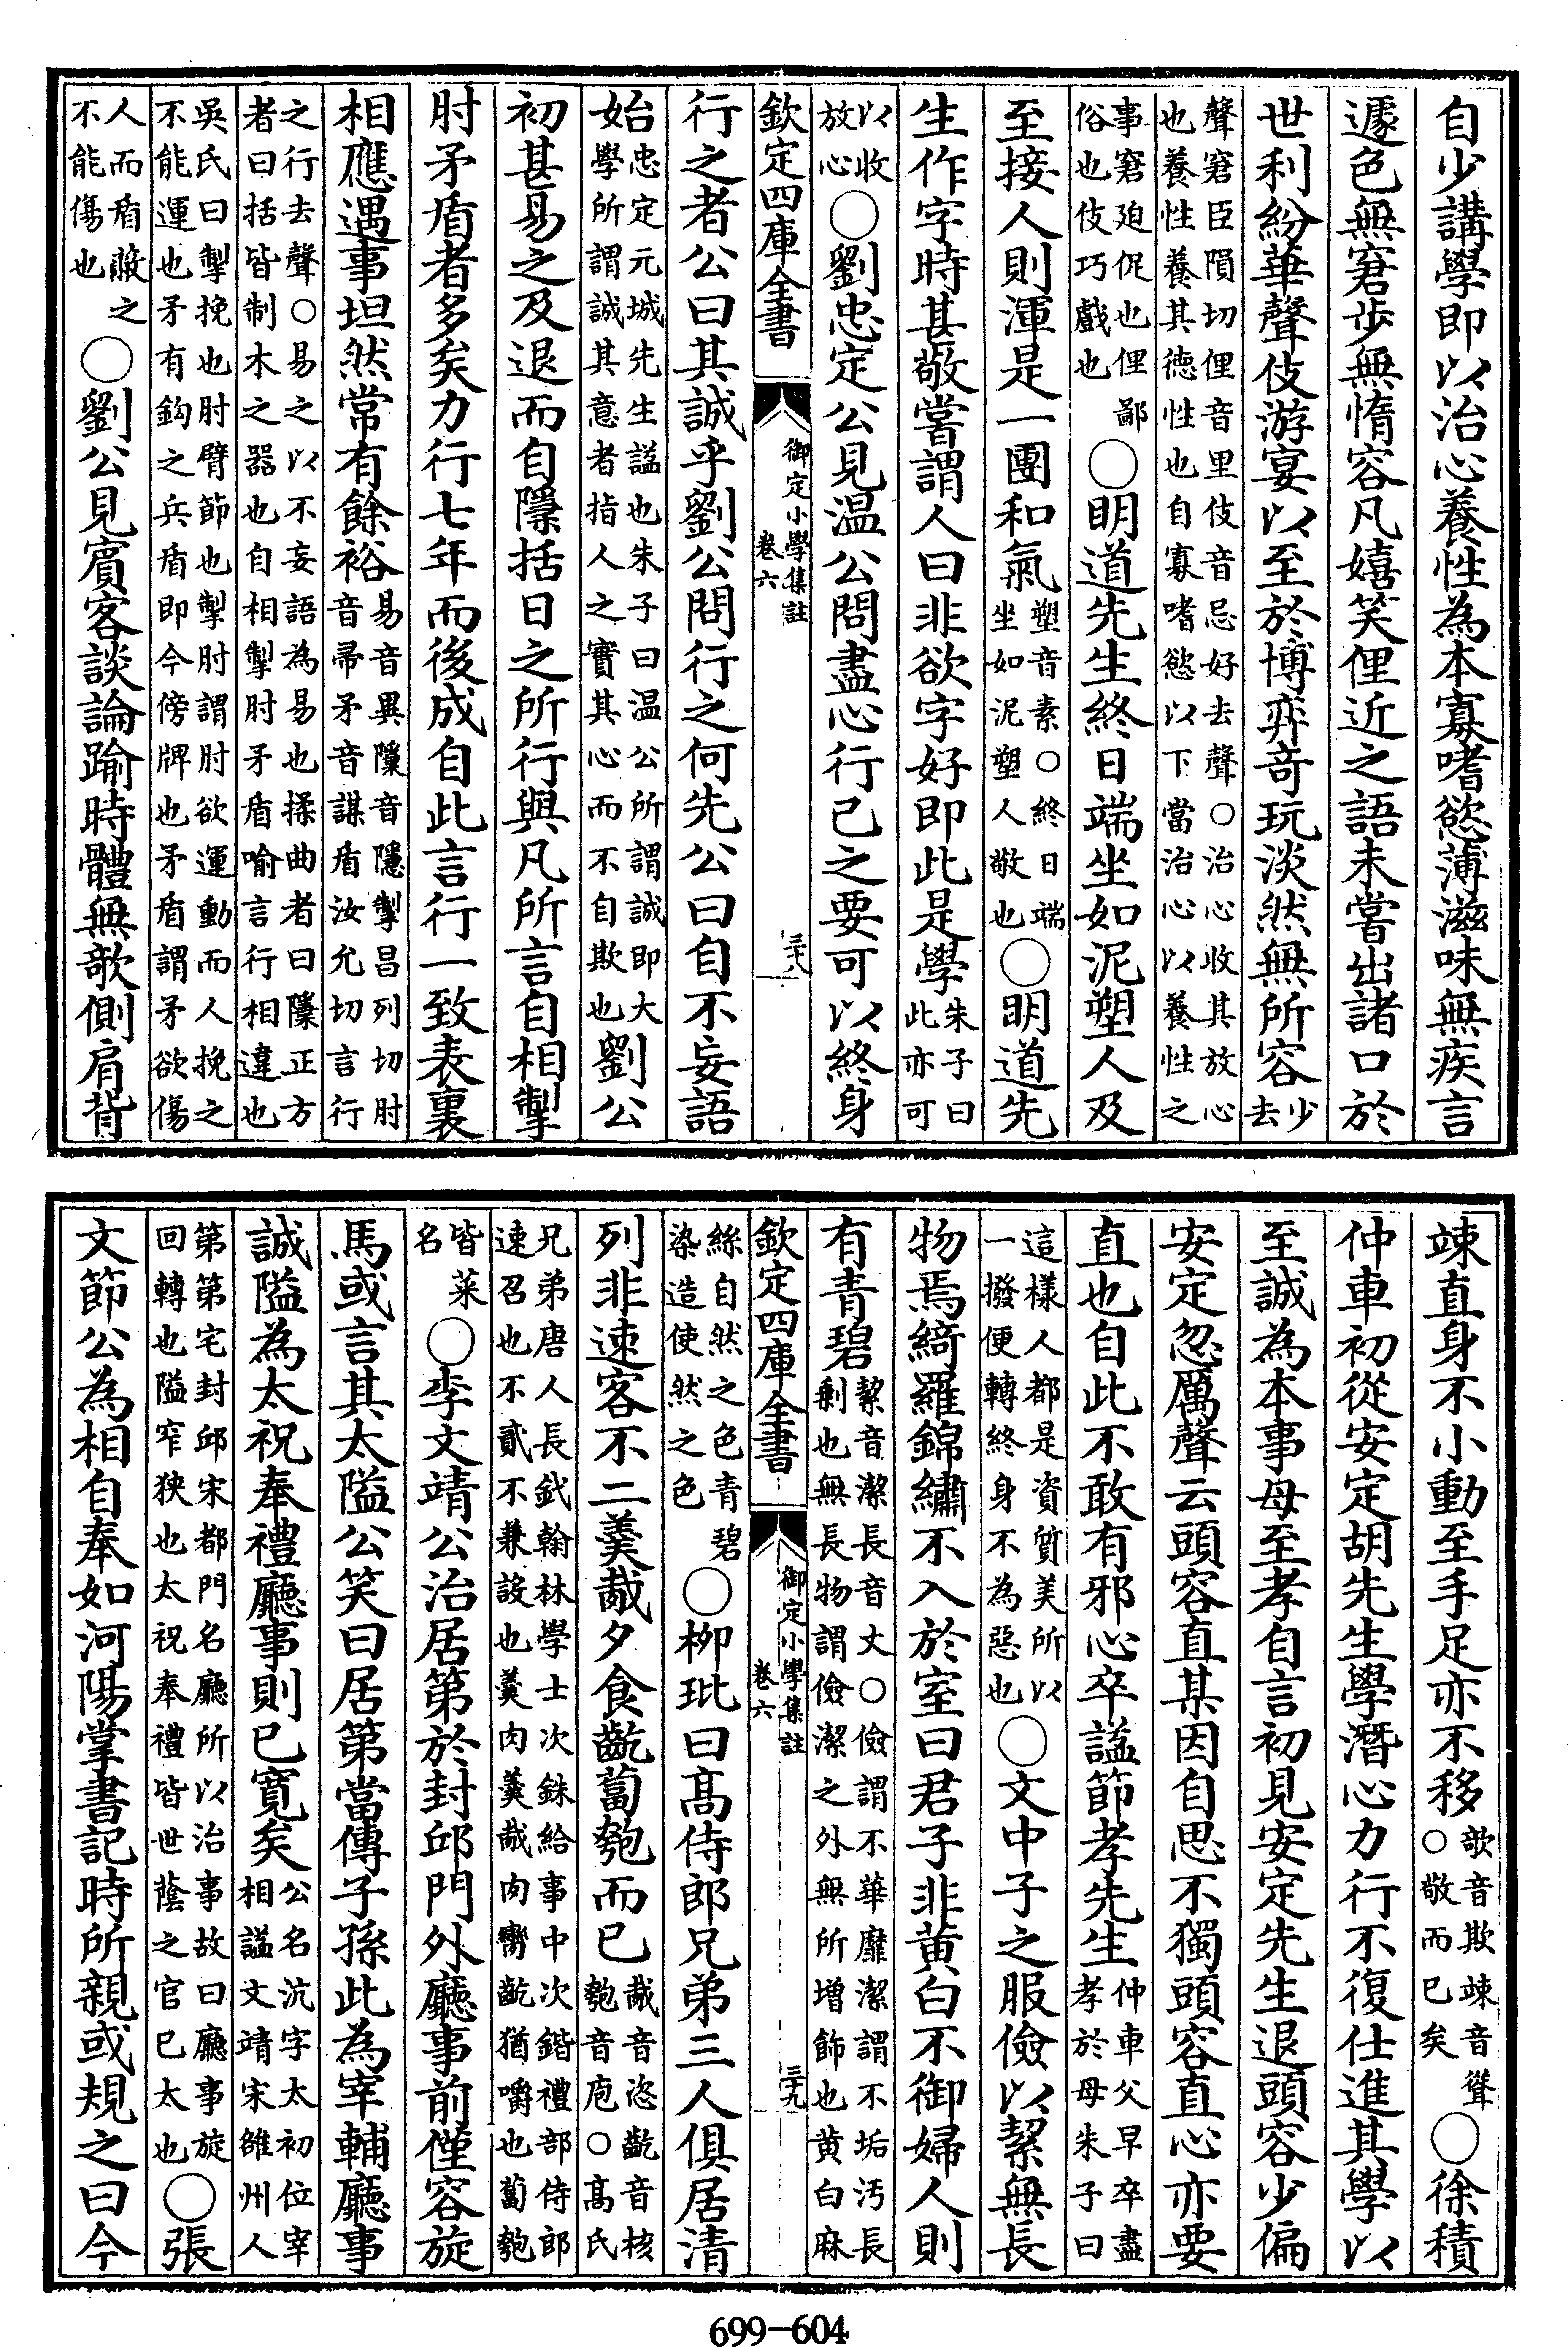 自少講學即以治心養性為本寡嗜慾薄滋味無疾言
遽色無窘步無惰容凡嬉笑俚近之語未嘗出諸口於
世利紛華聲伎游宴以至於博弈奇玩淡然無所容少去
聲窘臣隕切俚音里伎音忌好去聲○治心收其放心
也養性養其德性也自寡嗜慾以下當治心以養性之
事窘廹促也俚鄙
俗也伎巧戲也
○明道先生終日端坐如泥塑人及
至接人則渾是一團和氣塑音素○終日端
坐如泥塑人敬也
○明道先
生作字時甚敬嘗謂人曰非欲字好即此是學朱子曰
此亦可
以收
放心
○劉忠定公見温公問盡心行己之要可以終身
欽定四庫全書
御定小學集註
卷六
三十八
行之者公曰其誠乎劉公問行之何先公曰自不妄語
始忠定元城先生諡也朱子曰温公所謂誠即大
學所謂誠其意者指人之實其心而不自欺也
劉公
初甚易之及退而自隱括日之所行與凡所言自相掣
肘矛盾者多矣力行七年而後成自此言行一致表裏
相應遇事坦然常有餘裕易音異隱音隱掣昌列切肘
音帚矛音謀盾汝允切言行
之行去聲○易之以不妄語為易也揉曲者曰隱正方
者曰括皆制木之器也自相掣肘矛盾喻言行相違也
吳氏曰掣挽也肘臂節也掣肘謂肘欲運動而人挽之
不能運也矛有鈎之兵盾即今傍牌也矛盾謂矛欲傷
人而盾蔽之
不能傷也
○劉公見賓客談論踰時體無欹側肩背
竦直身不小動至手足亦不移欹音欺竦音聳
○敬而已矣
○徐積
仲車初從安定胡先生學潛心力行不復仕進其學以
至誠為本事母至孝自言初見安定先生退頭容少偏
安定忽厲聲云頭容直某因自思不獨頭容直心亦要
直也自此不敢有邪心卒諡節孝先生仲車父早卒盡
孝於母朱子曰
這樣人都是資質美所以
一撥便轉終身不為惡也
○文中子之服儉以絜無長
物焉綺羅錦繡不入於室曰君子非黃白不御婦人則
有青碧絜音潔長音丈○儉謂不華靡潔謂不垢污長
剩也無長物謂儉潔之外無所增飾也黄白麻
欽定四庫全書
御定小學集註
卷六
三十九
絲自然之色青碧
染造使然之色
○柳玭曰高侍郎兄弟三人俱居清
列非速客不二羹胾夕食齕蔔匏而已胾音恣齕音核
匏音庖○高氏
兄弟唐人長釴翰林學士次銖給事中次鍇禮部侍郎
速召也不貳不兼設也羹肉羹胾肉臠齕猶嚼也蔔匏
皆菜
名
○李文靖公治居第於封邱門外廳事前僅容旋
馬或言其太隘公笑曰居第當傳子孫此為宰輔廳事
誠隘為太祝奉禮廳事則已寛矣公名沆字太初位宰
相諡文靖宋雒州人
第第宅封邱宋都門名廳所以治事故曰廳事旋
回轉也隘窄狹也太祝奉禮皆世蔭之官已太也
○張
文節公為相自奉如河陽掌書記時所親或規之曰今
699-604